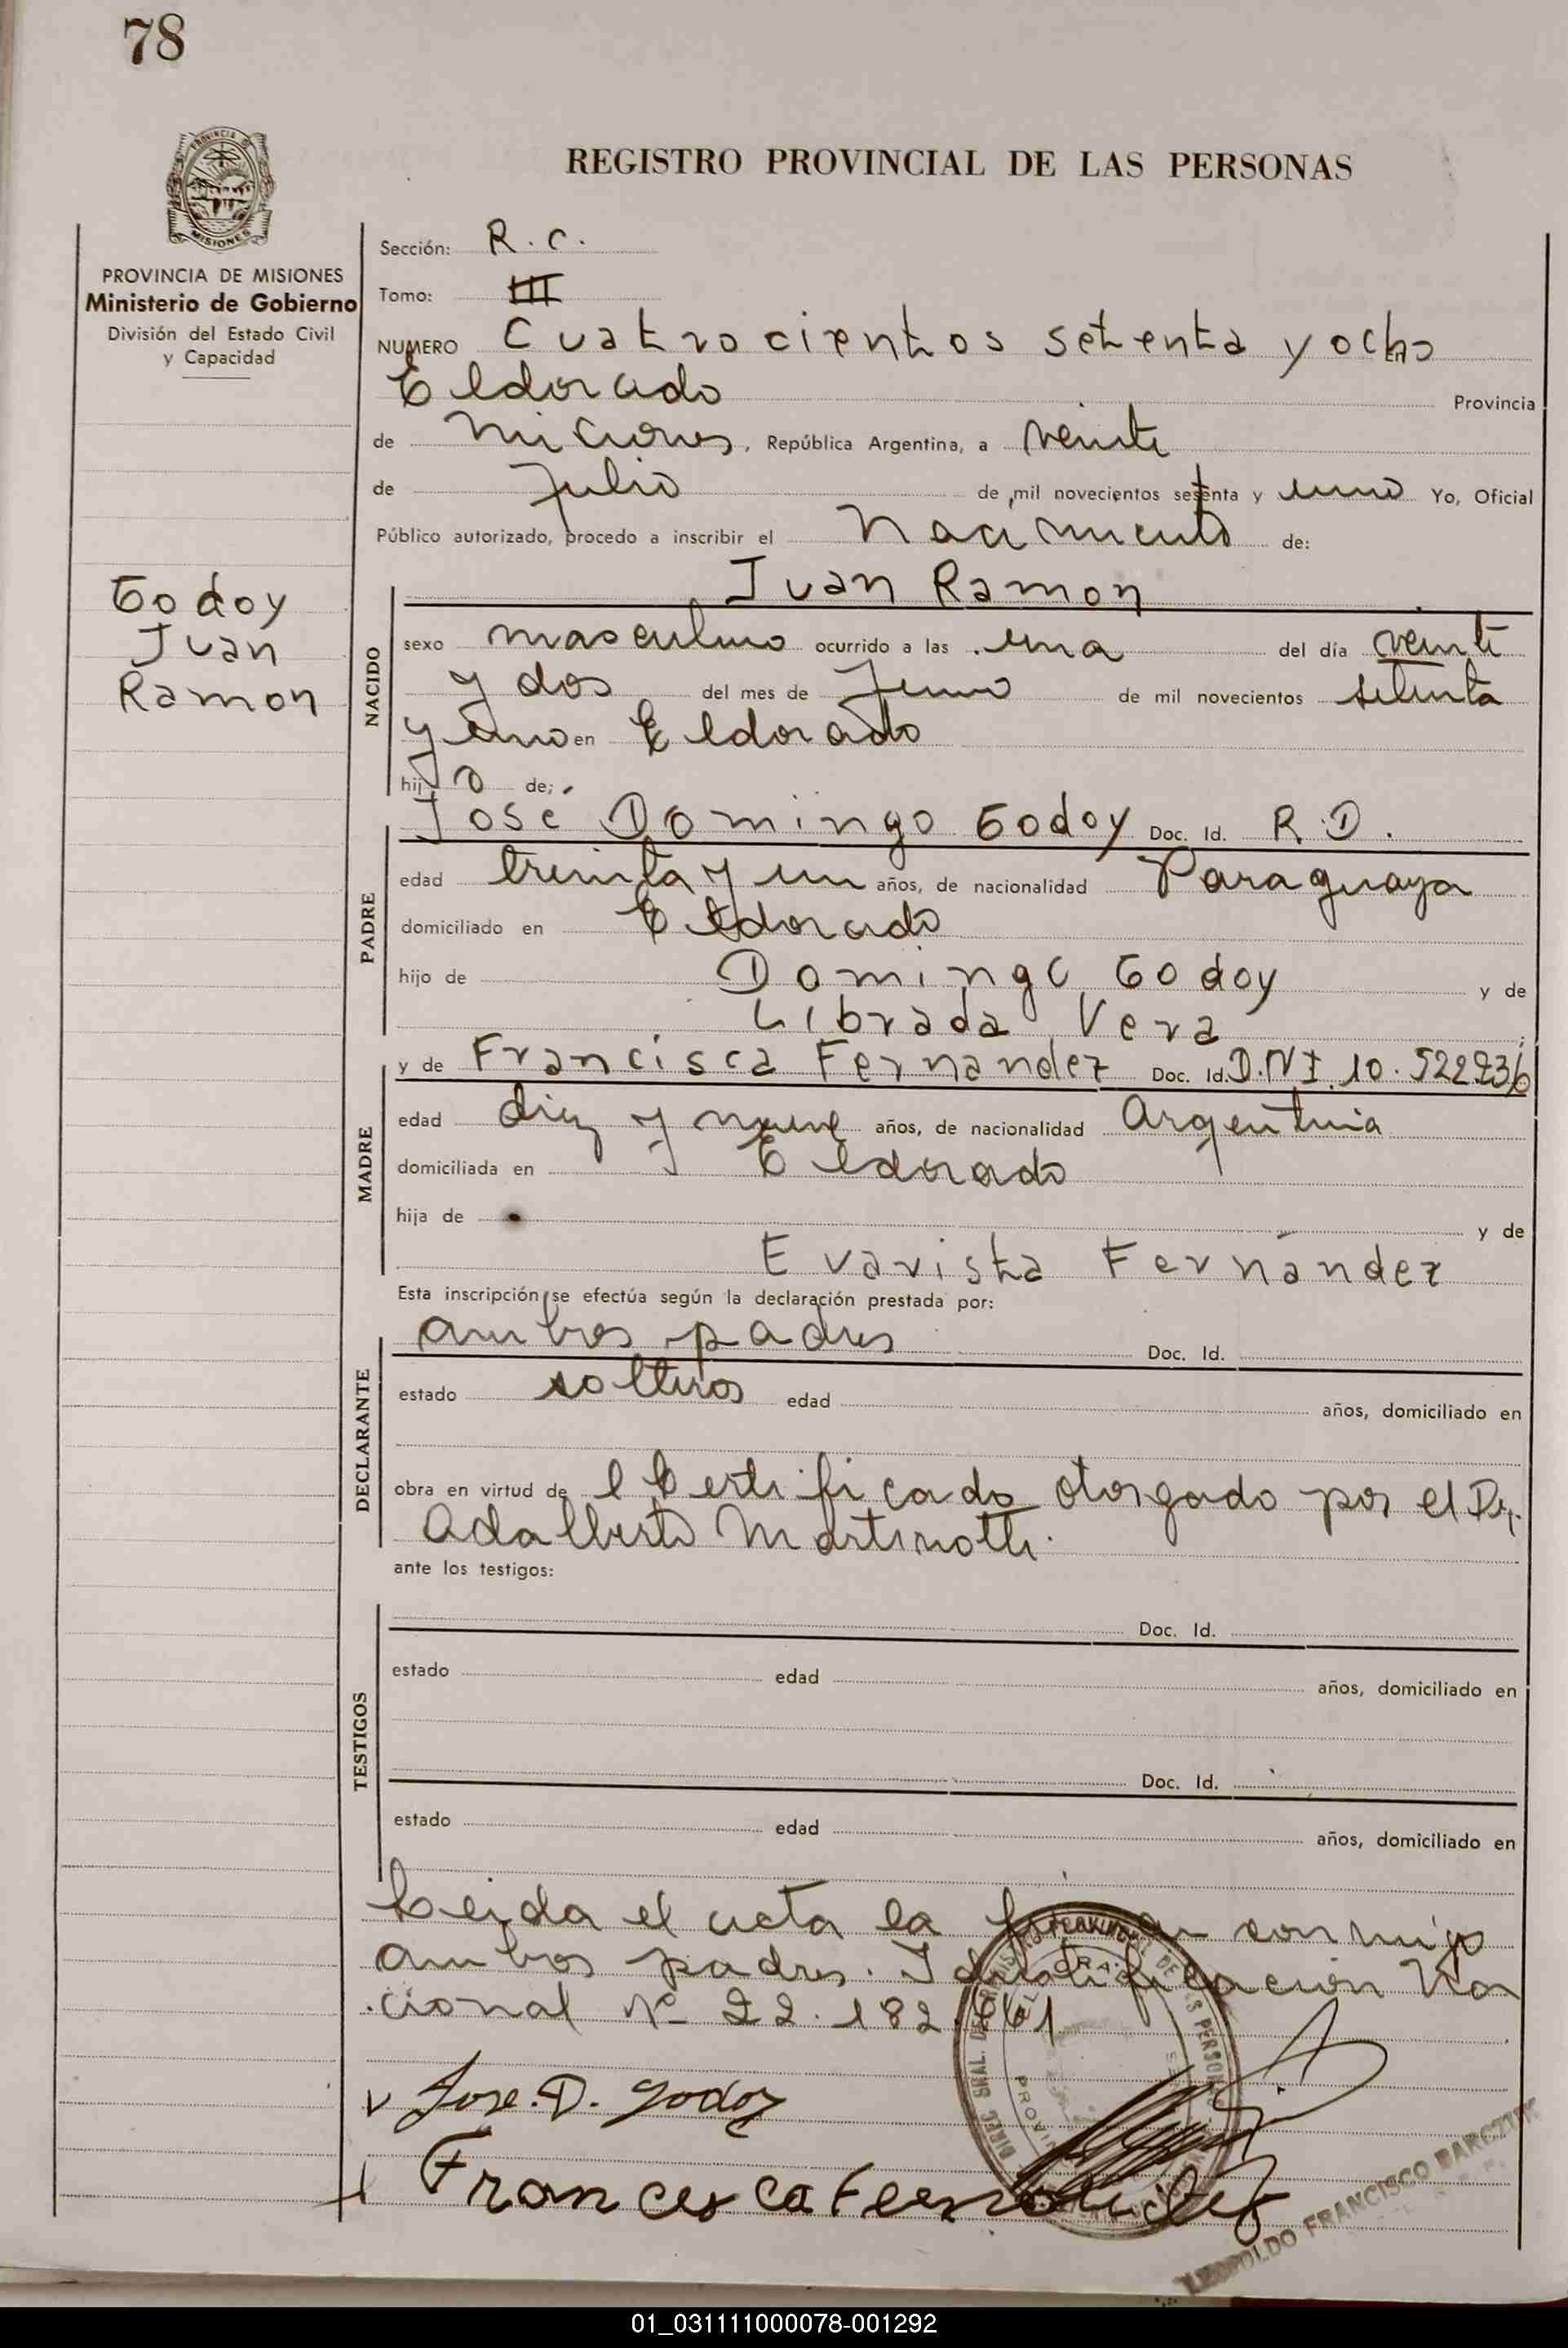 78
PROVINCIA
MISIONES
PROVINCIA DE MISIONES
Ministerio de Gobierno
División del Estado Civil
y Capacidad
Godoy
Juan
Ramon
REGISTRO PROVINCIAL DE LAS PERSONAS
Sección: R. C.
Tomo: III
NUMERO Cuatrocientos setenta y ocho
Eldorado Provincia
de Miciones, República Argentina, a veinte
de Julio de mil novecientos setenta y uno Yo, Oficial
Público autorizado, procedo a inscribir el Nacimiento de:
Juan Ramon
NACIDO
sexo masculino ocurrido a las una del día veinti
y dos del mes de Junio de mil novecientos setenta
y uno en Eldorado
hijo de;
José Domingo Godoy Doc. Id. R. D.
PADRE
edad treinta y un años, de nacionalidad Paraguaya
domiciliado en Eldorado
hijo de Domingo Godoy y de
Librada Vera
y de Francisca Fernandez Doc. Id. D.N.I. 10.522236
MADRE
edad diez y nueve años, de nacionalidad Argentina
domiciliada en Eldorado
hija de y de
Evarista Fernández
Esta inscripción se efectúa según la declaración prestada por:
ambos padres Doc. Id.
DECLARANTE
estado solteros edad años, domiciliado en
obra en virtud de l Certificado otorgado por el Dr.
Adalberto Martinotti.
ante los testigos:
Doc. Id.
TESTIGOS
estado edad años, domiciliado en
Doc. Id.
estado edad años, domiciliado en
Leida el acta la firman conmigo
ambos padres. Identificación Na
cional Nº 22.182.661
Jose. D. Godoy
Francisca Fernandez
LEOPOLDO FRANCISCO BARCZUK
01_031111000078-001292